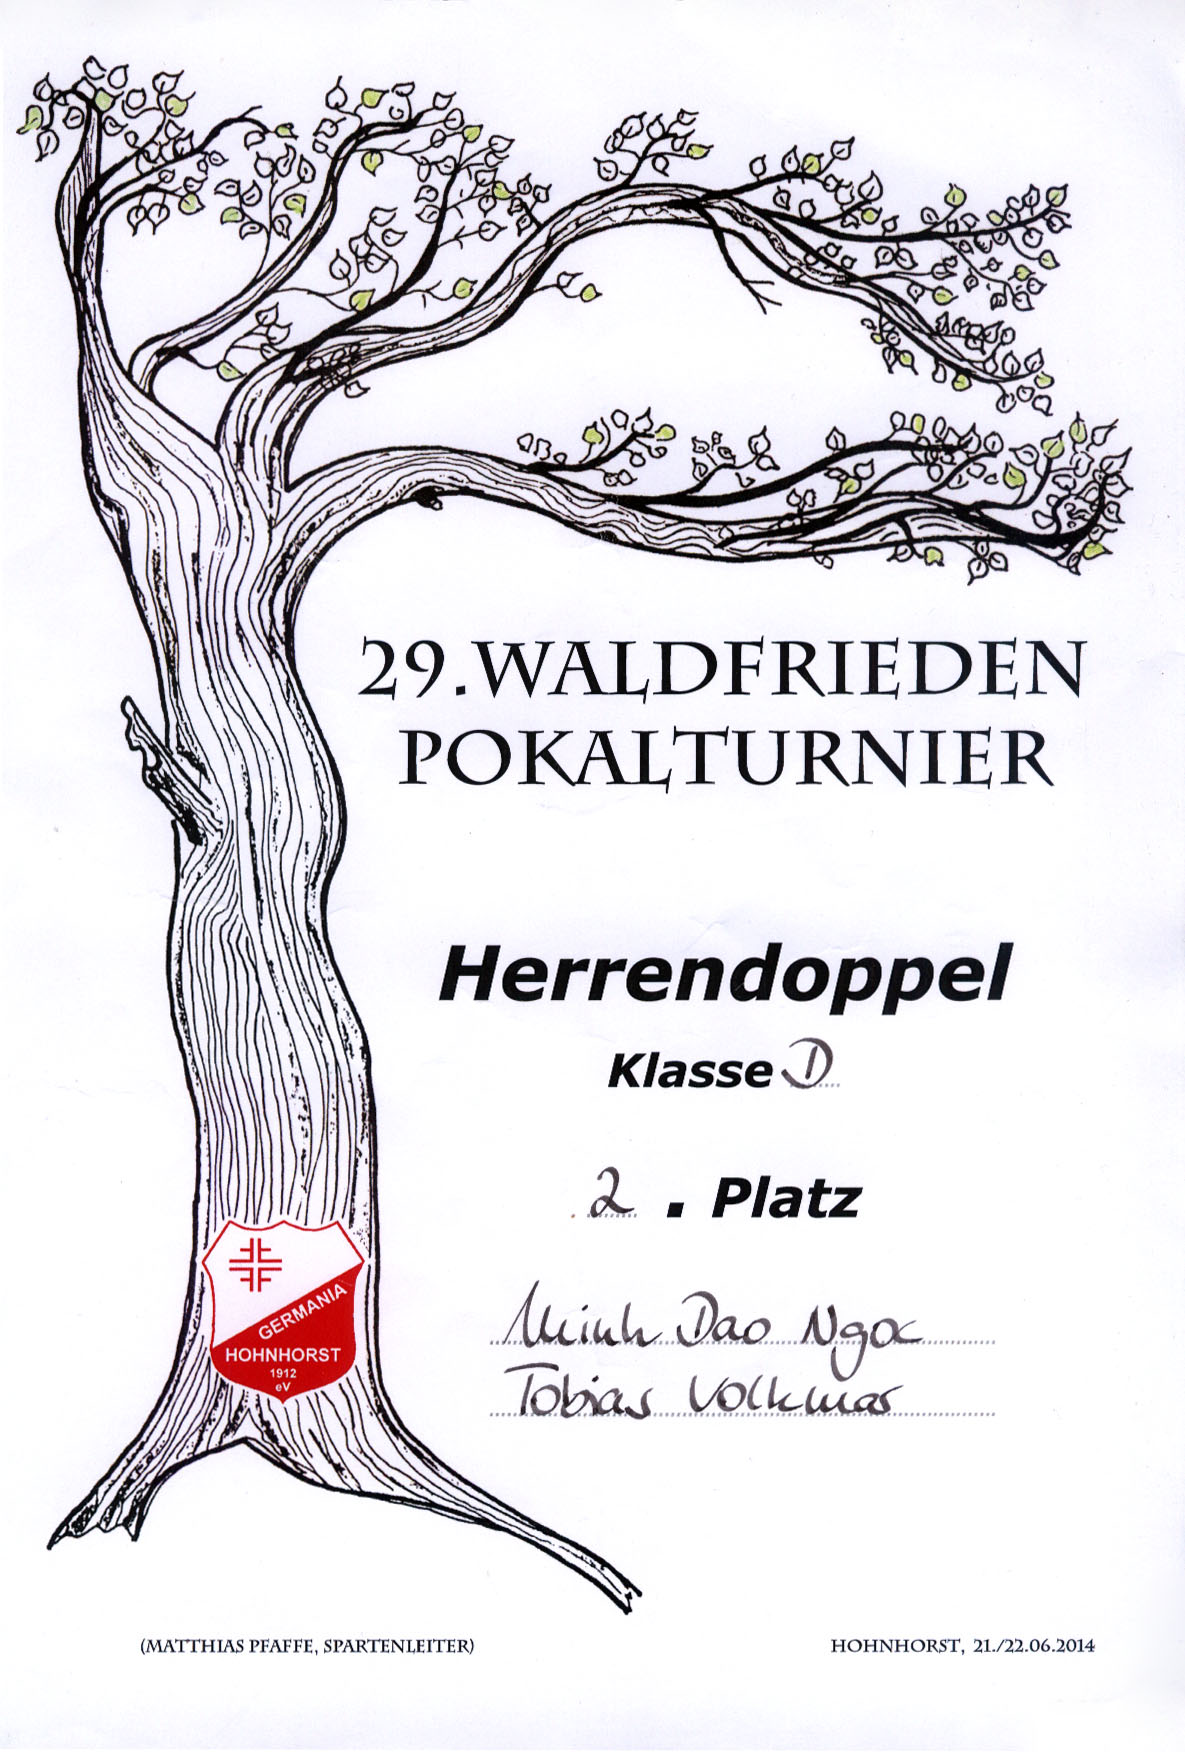 29. WALDFRIEDEN
POKALTURNIER
Herrendoppel
Klasse D
2 . Platz
Minh Dao Ngoc
Tobias Volkmar
GERMANIA
HOHNHORST
1912
eV
(MATTHIAS PFAFFE, SPARTENLEITER)
HOHNHORST, 21./22.06.2014